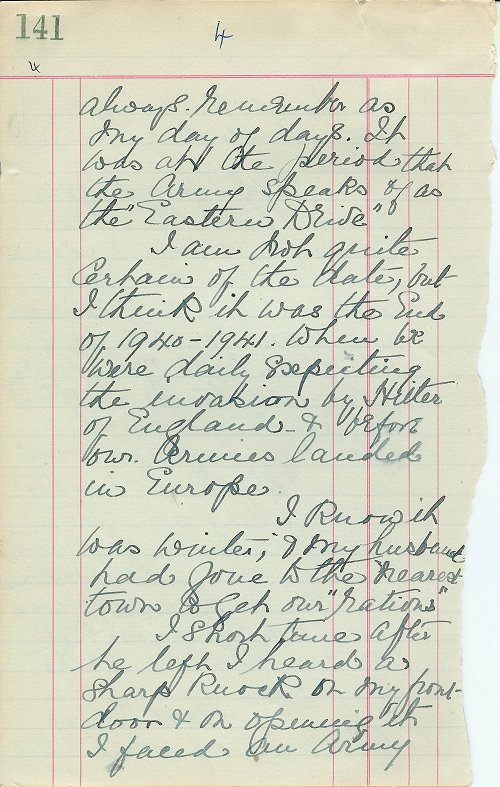 141
4
4
always remember as
my day of days. It
was at the period that
the Army speaks of as
the "Eastern Drive"
I am not quite
Certain of the date, but
I think it was the End
of 1940-1941. When we
were daily Expecting
the invasion by Hitler
of England & before
our Armies landed
in Europe.
I Know it
was winter, & my husband
had gone to the nearest
town to get our "rations"
A short time after
he left I heard a
Sharp Knock on my front-
door & on opening it
I faced an Army